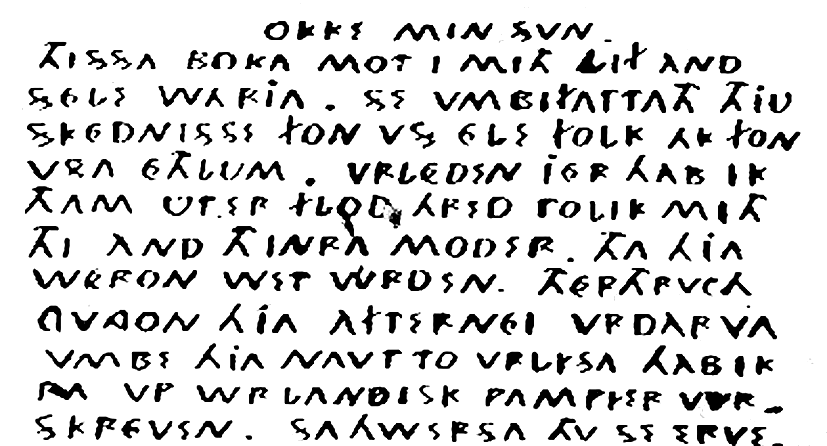 OKKE MIN SVN.
THISSA BOKA MOT I MITH LIF AND
SELE WARJA. SE VMBIFATTATH THJU
SKEDNISSE FON VS ELE FOLK AK FON
VSA ETHLUM. VRLEDEN JER HAB IK
THAM UT.ER FLOD HRED TOLIK MITH
THI AND THINRA MODER. THA HJA
WERON WET WRDEN. THERTHRVCH
GVNGON HJA AFTERNEI VRDARVA
VMBE HJA NAVT TO HAB IK
RA VP WRLANDISK PAMPIER WR-
SKREVEN. SAHWERSA THV SE ERVE.